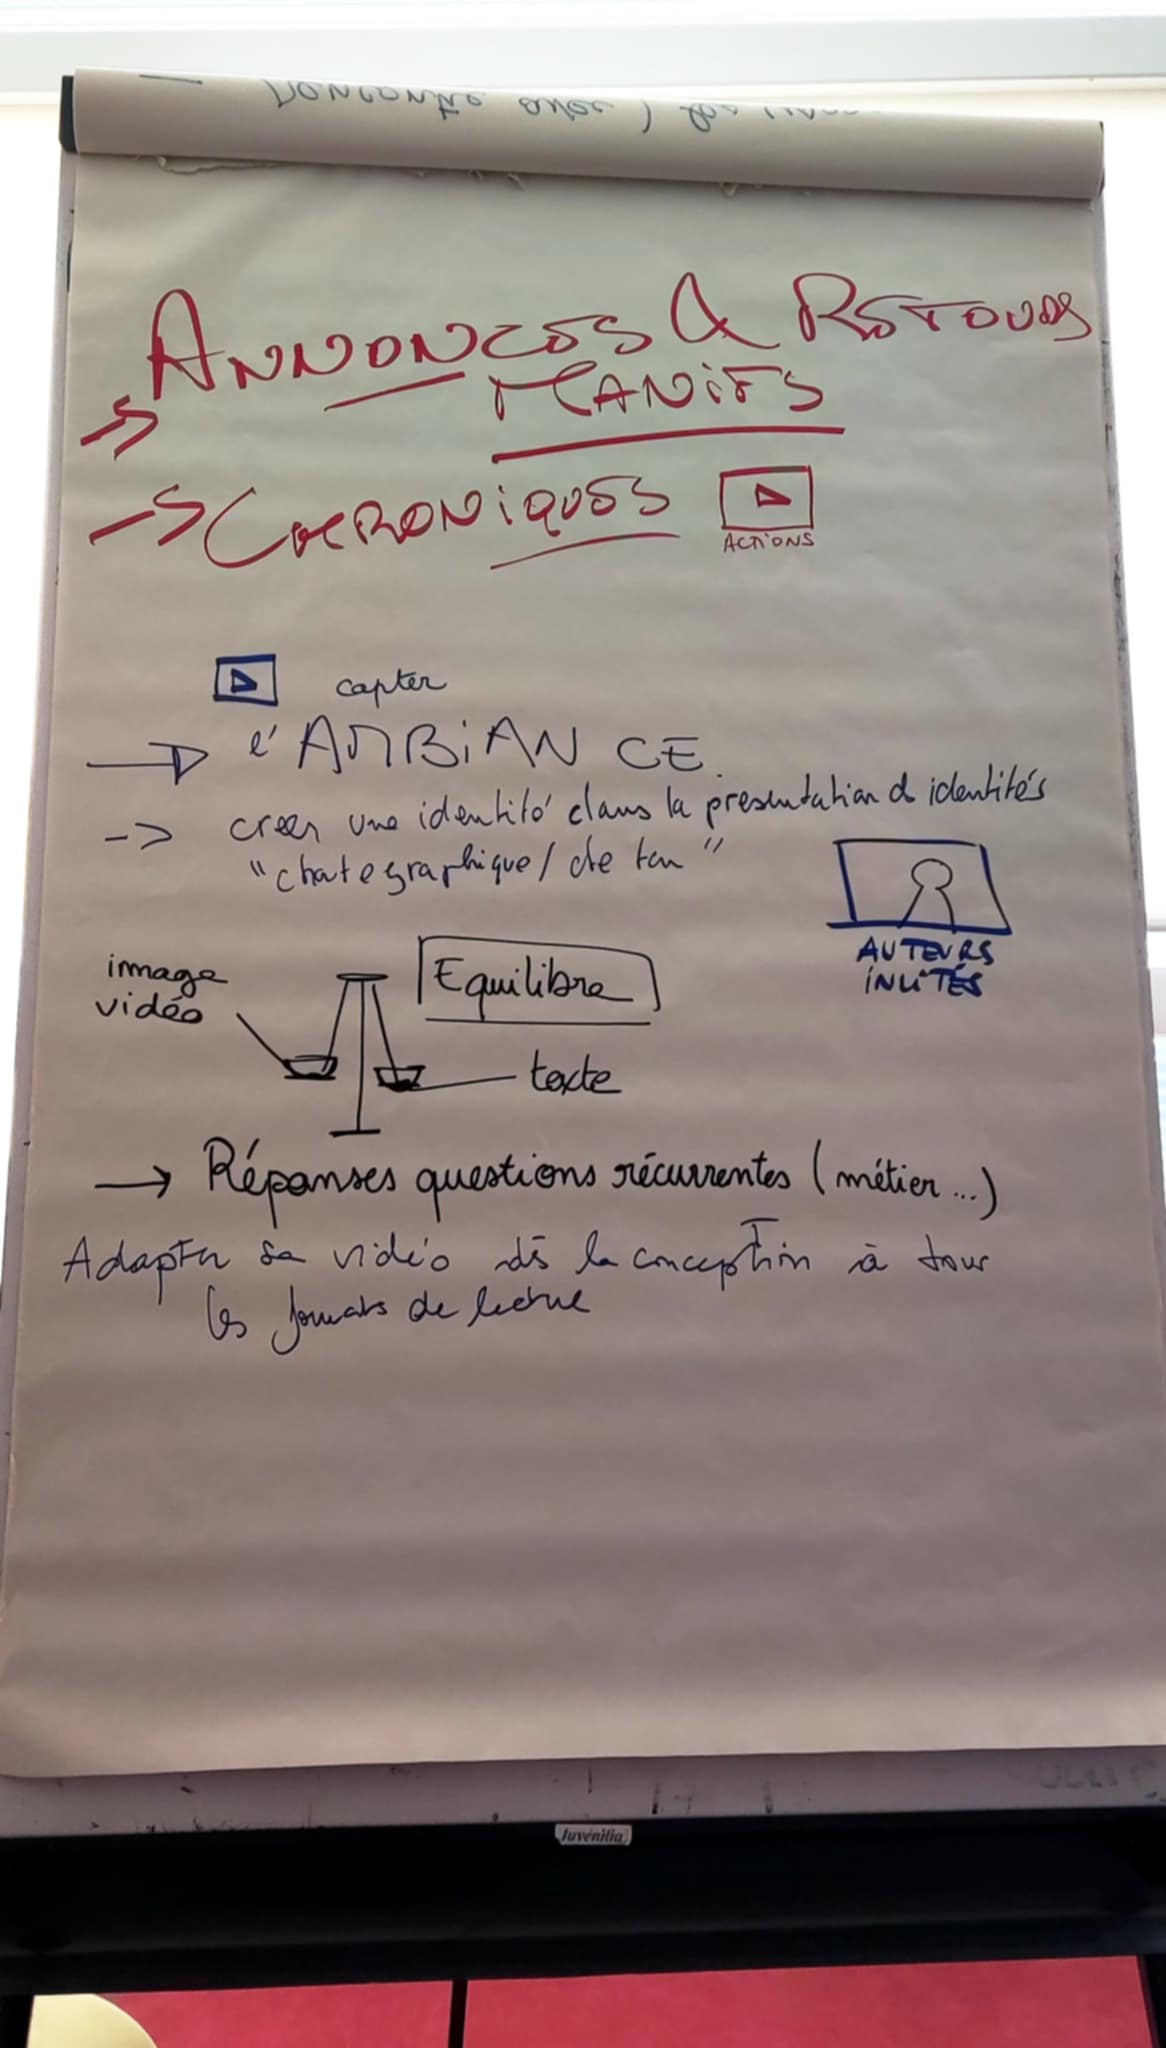 Rencontre avec
→ ANNONCES & RETOURS
MANIFS
→ CHRONIQUES
ACTIONS
capter
→ l'AMBIANCE
-> creer une identité dans la presentation d identités
"chartegraphique / de ton"
AUTEURS
INVITÉS
image
vidéo
Equilibre
texte
→ Réponses questions récurrentes (métier...)
Adapter sa vidéo dès la conception à tous
les formats de lecture
Juvenilia